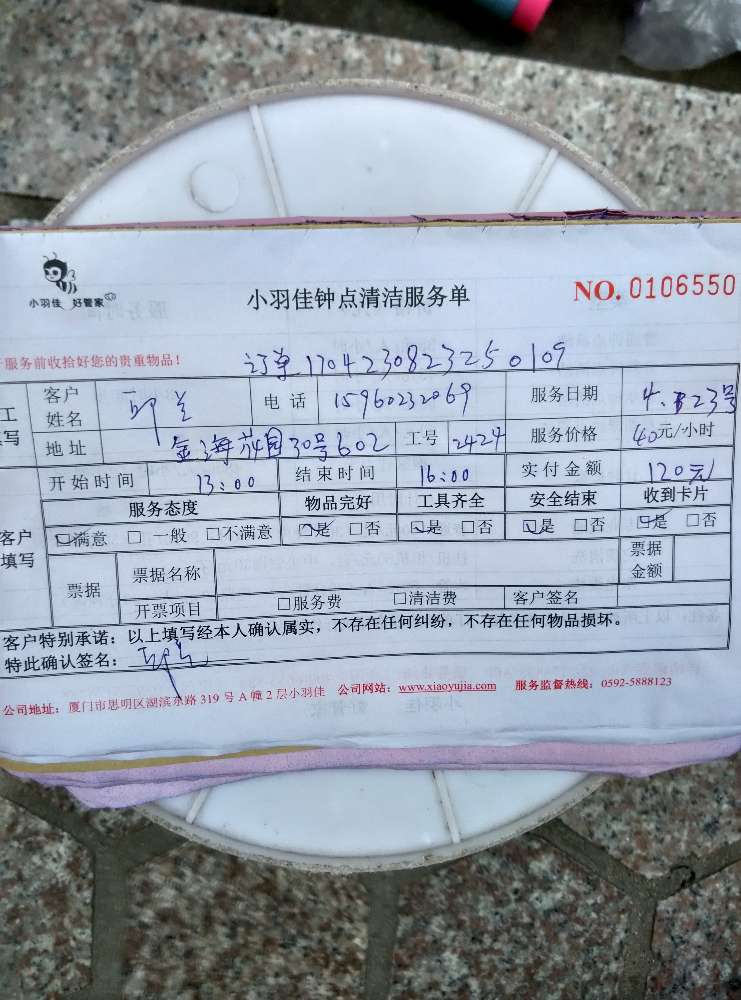 小羽佳 好管家
小羽佳钟点清洁服务单
NO. 0106550
服务前收拾好您的贵重物品!
订单1704230823250109
工 客户姓名 电话 15960232069 服务日期 4. 23号
写 地址 金海花园30号602 工号 2424 服务价格 40元/小时
开始时间 13:00 结束时间 16:00 实付金额 120元
客户填写 服务态度 物品完好 工具齐全 安全结束 收到卡片
☑满意 □一般 □不满意 ☑是 □否 ☑是 □否 ☑是 □否 ☑是 □否
票据 票据名称 票据金额
开票项目 □服务费 □清洁费 客户签名
客户特别承诺:以上填写经本人确认属实,不存在任何纠纷,不存在任何物品损坏。
特此确认签名:
公司地址:厦门市思明区湖滨东路319号A幢2层小羽佳 公司网站:www.xiaoyujia.com 服务监督热线:0592-5888123